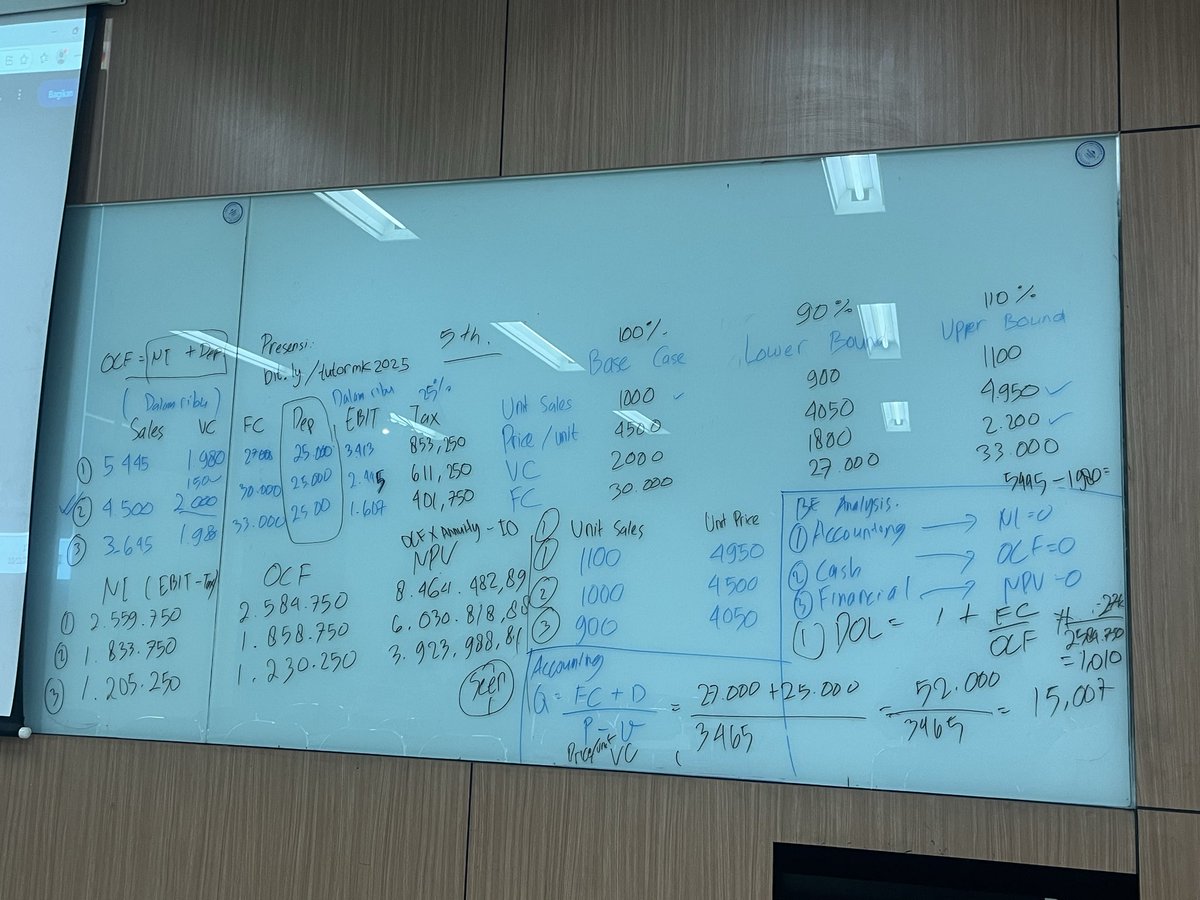 Bagikan
OCF = NI + Dep
(Dalam ribu)
Presensi:
bit.ly/tutormk2025
5 th.
Dalam ribu
25%
Sales VC FC Dep EBIT Tax
① 5 445 1.980 27.000 25.000 3413 853,250
② 4.500 2.000 30.000 25.000 2.445 611,250
③ 3.645 1.98 33.000 25.00 1.607 401,750
OCF x Annuity - IO
NI (EBIT - Tax) OCF NPV
① 2.559.750 2.584.750 8.464.482,89
② 1.833.750 1.858.750 6.030.818,88
③ 1.205.250 1.230.250 3.923.988,81
100% 90% 110%
Base Case Lower Bound Upper Bound
Unit Sales 1000 ✓ 900 1100
Price/unit 4500 4050 4.950 ✓
VC 2000 1800 2.200 ✓
FC 30.000 27.000 33.000
5445 - 1980 =
① Unit Sales Unit Price
① 1100 4950
② 1000 4500
③ 900 4050
BE Analysis.
① Accounting → NI = 0
② Cash → OCF = 0
③ Financial → NPV = 0
① DOL = 1 + FC
OCF
2584.750
= 1,010
Accounting
Q = FC + D = 27.000 + 25.000 = 52.000 = 15,007
P - V 3465 3465
Price/unit VC